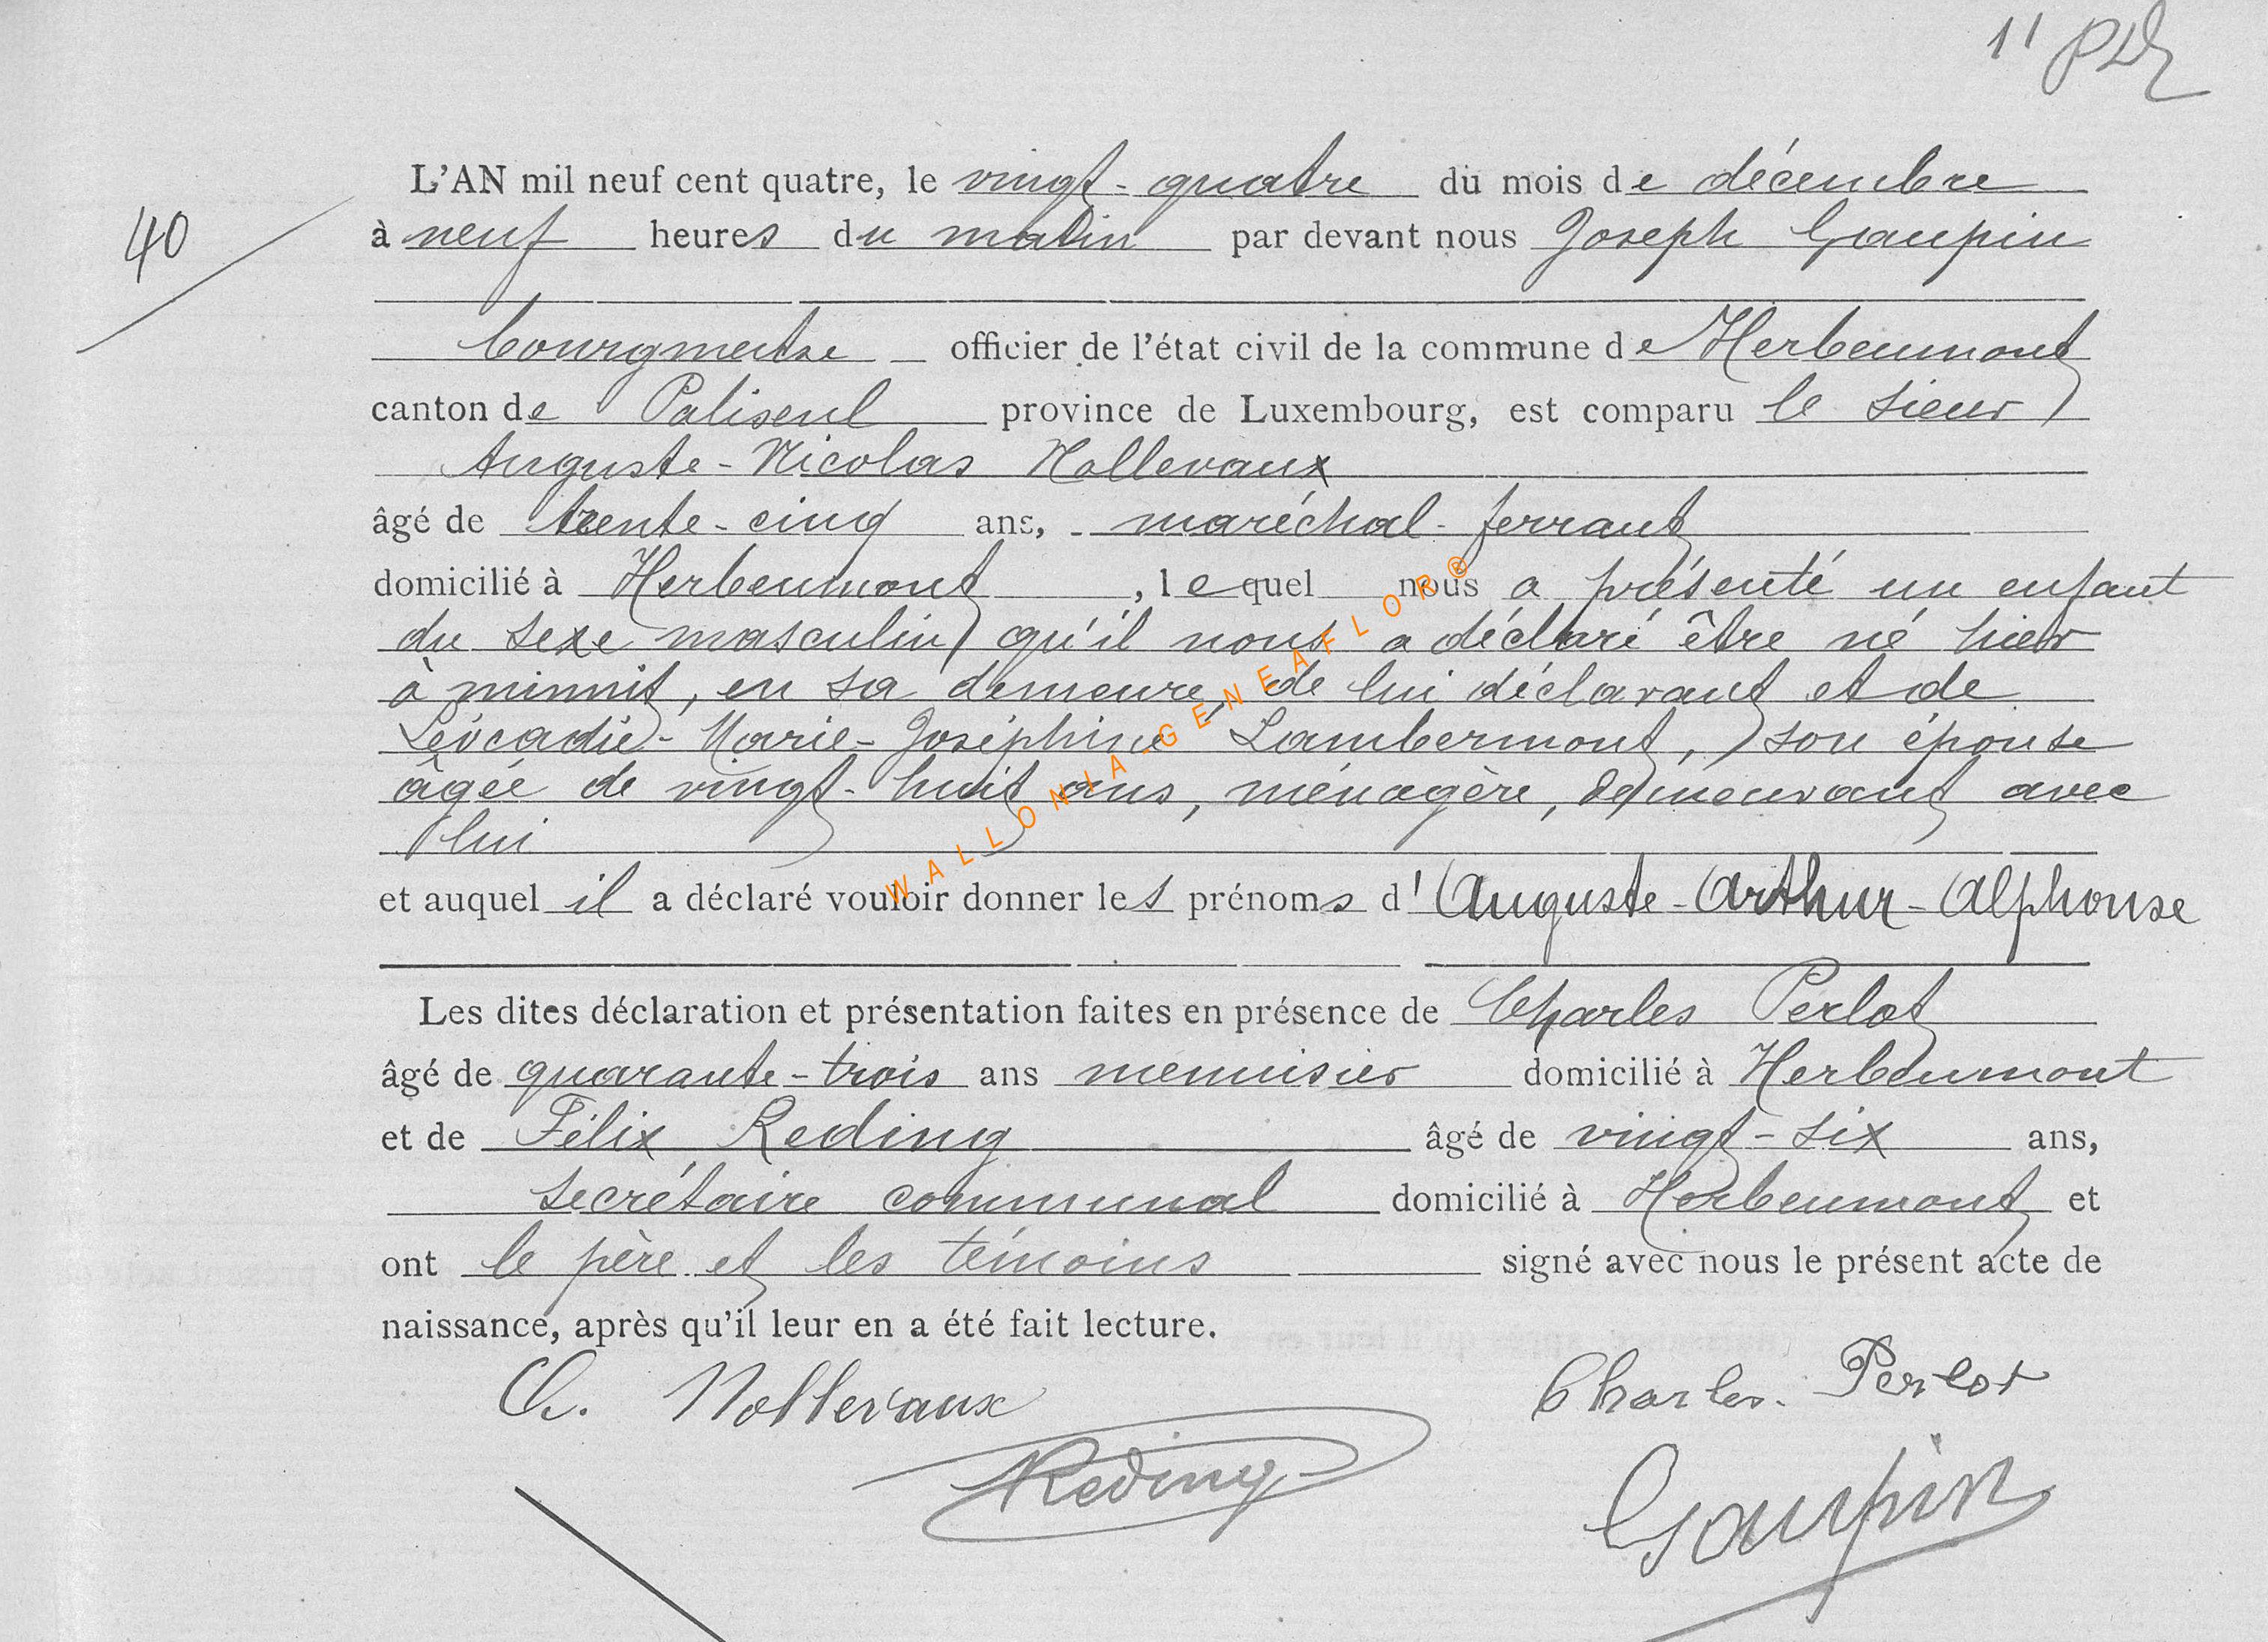 11
40
L'AN mil neuf cent quatre, le vingt-quatre du mois de décembre
à neuf heures du matin par devant nous Joseph Gaupin
bourgmestre officier de l'état civil de la commune de Herbeumont
canton de Paliseul province de Luxembourg, est comparu le sieur
Auguste-Nicolas Nollevaux
âgé de trente-cinq ans, maréchal-ferrant
domicilié à Herbeumont, lequel nous a présenté un enfant
du sexe masculin qu'il nous a déclaré être né hier
à minuit, en sa demeure, de lui déclarant et de
Léocadie-Marie-Joséphine Lambermont, son épouse
âgée de vingt-huit ans, ménagère, demeurant avec
lui
et auquel il a déclaré vouloir donner les prénoms d'Auguste-Arthur-Alphonse
Les dites déclaration et présentation faites en présence de Charles Perlot
âgé de quarante-trois ans menuisier domicilié à Herbeumont
et de Félix Reding âgé de vingt-six ans,
secrétaire communal domicilié à Herbeumont et
ont le père et les témoins signé avec nous le présent acte de
naissance, après qu'il leur en a été fait lecture.
Nollevaux Charles Perlot
Reding
Gaupin
WALLONIA-GENEAFLOR®